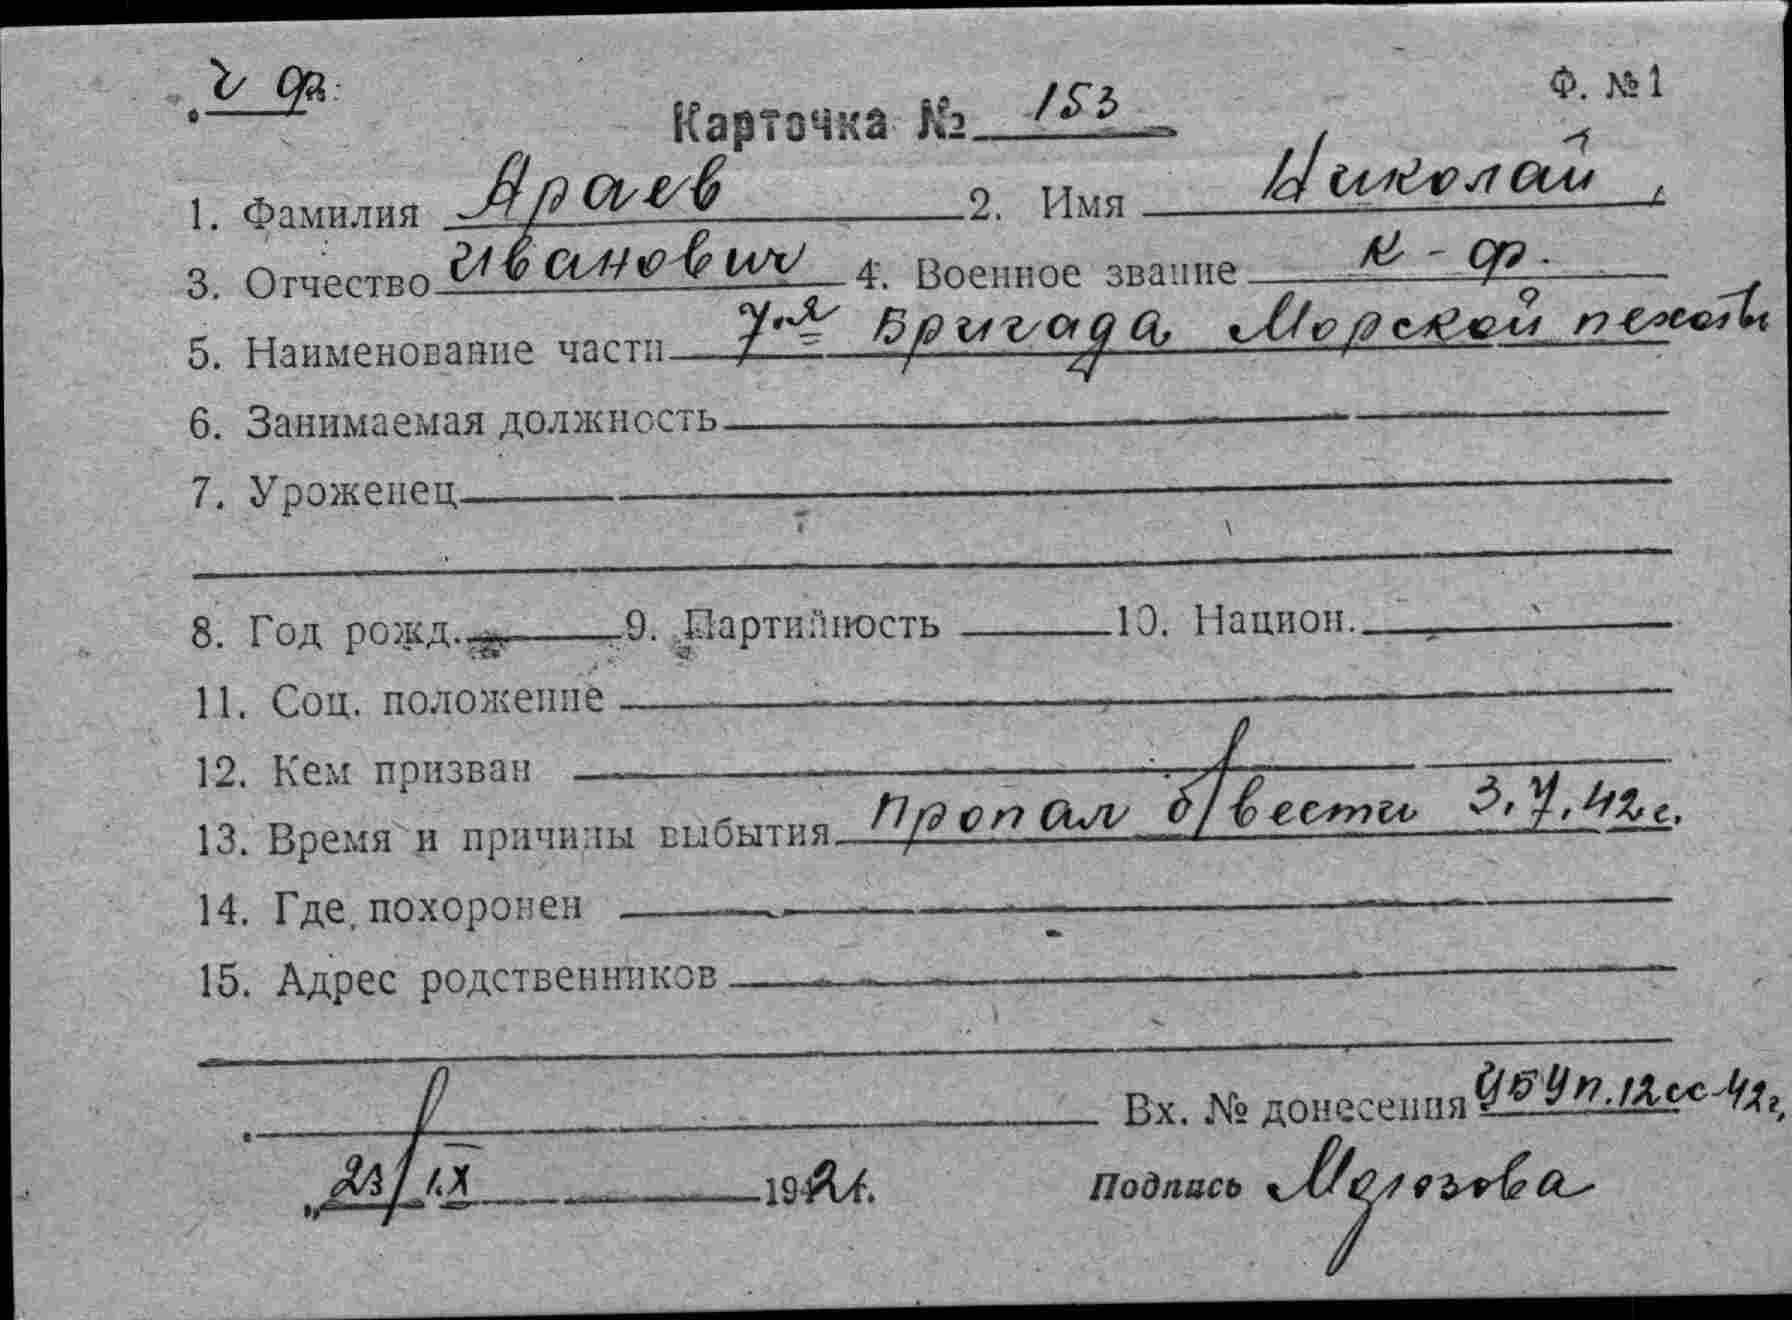 ч ф. Ф. № 1
Карточка № 153
1. Фамилия Араев 2. Имя Николай
3. Отчество Иванович 4. Военное звание к-ф.
5. Наименование части 7-я Бригада Морской пехоты
6. Занимаемая должность
7. Уроженец
8. Год рожд. 9. Партийность 10. Национ.
11. Соц. положение
12. Кем призван
13. Время и причины выбытия Пропал б/вести 3.7.42г.
14. Где похоронен
15. Адрес родственников
Вх. № донесения 12сс-42г.
23/IX 19 Подпись Морозова